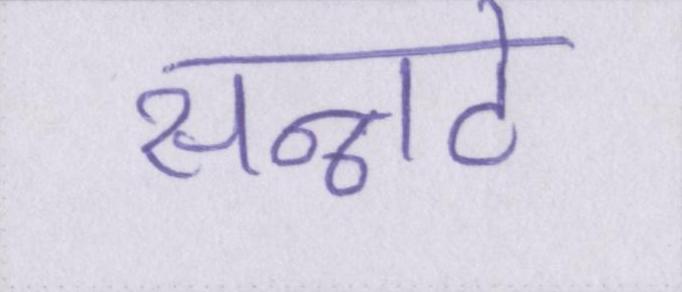 सन्नाटे